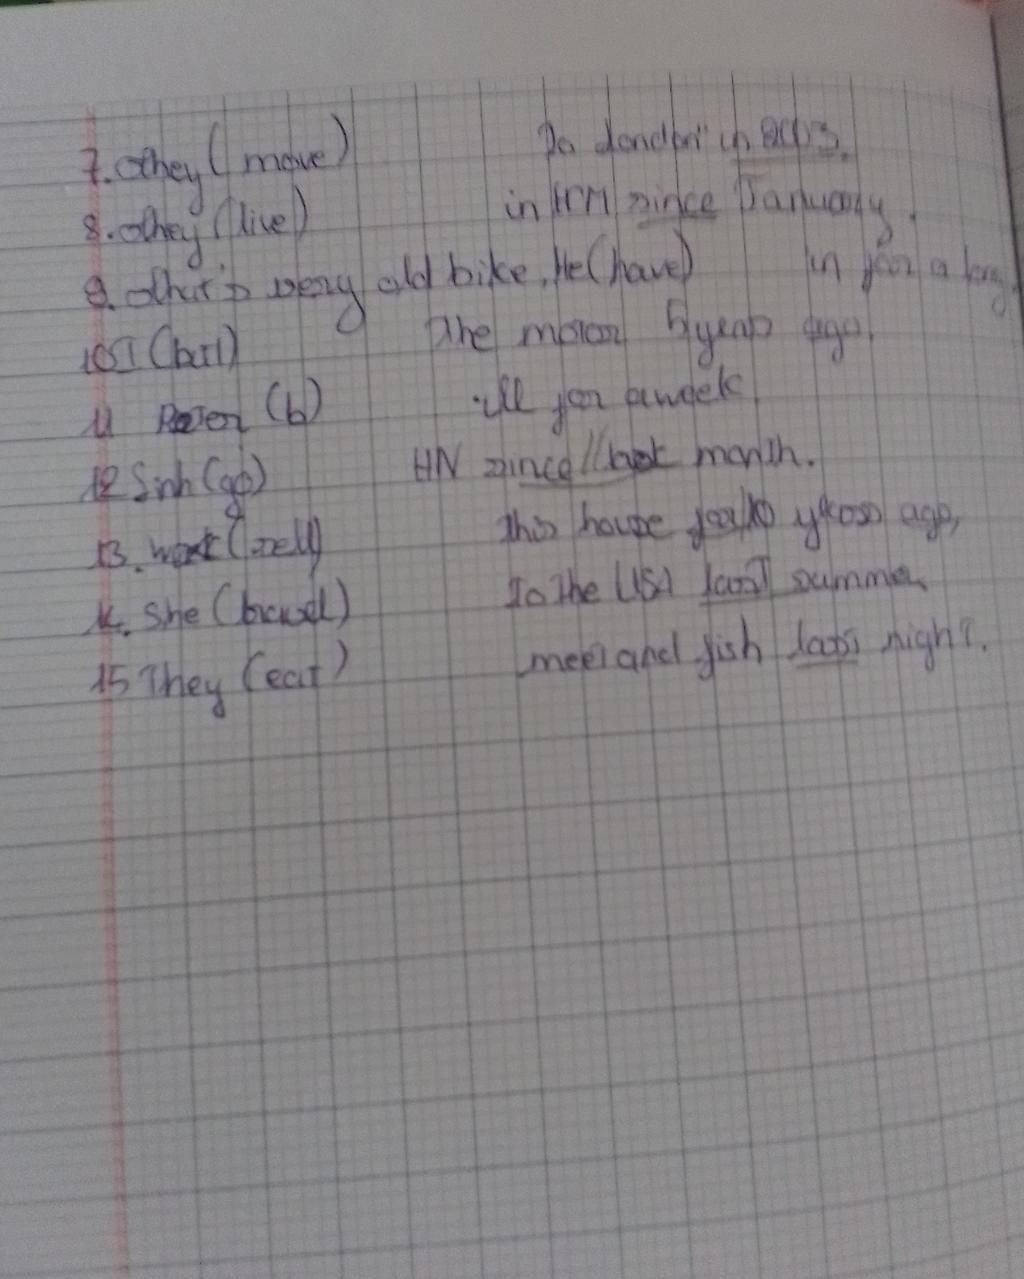 7. They (move) To London in 2013.
8. They (live) in HCM since January.
9. That's very old bike. He (have) in for a long
10 I (buil) The moton 5 years ago.
11 Peter (b) ill for a week
12 Sinh (go) HN since last month.
13. (sell) this house ago,
14. She (travel) To the USA last summer
15 They (eat) and fish last night.